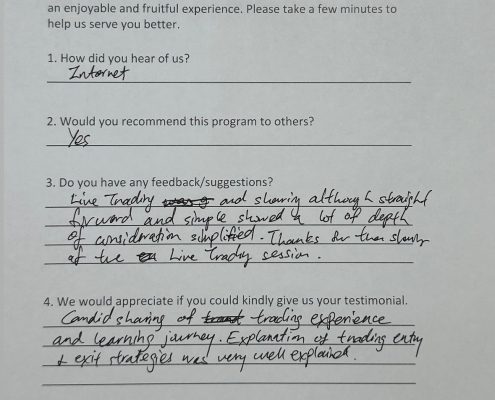 an enjoyable and fruitful experience. Please take a few minutes to
help us serve you better.
1. How did you hear of us?
Internet
2. Would you recommend this program to others?
Yes
3. Do you have any feedback/suggestions?
Live Trading and sharing although straight
forward and simple showed a lot of depth
of consideration simplified. Thanks for the
of the Live Trading session.
4. We would appreciate if you could kindly give us your testimonial.
Candid sharing of trading experience
and learning journey. Explanation of trading entry
& exit strategies was very well explained.